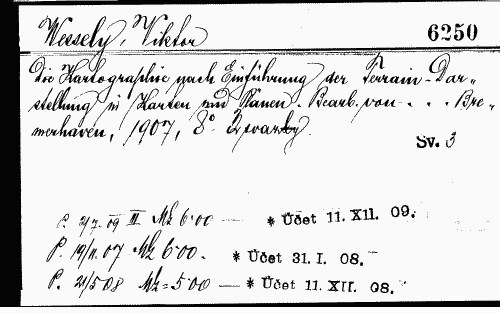 Wessely, Viktor 6250
Die Kartographie nach Einführung der Terrain-Dar-
stellung in Karten und Plänen. Bearb. von . . . Bre-
merhaven, 1907, 8° 2 svazky.
Sv. 3
P. 2/7. 09 III Mk 6·00 — * Účet 11. XII. 09.
P. 19/11. 07 Mk 6·00. * Účet 31. I. 08.
P. 21/5 08 Mk = 5·00 — * Účet 11. XII. 08.